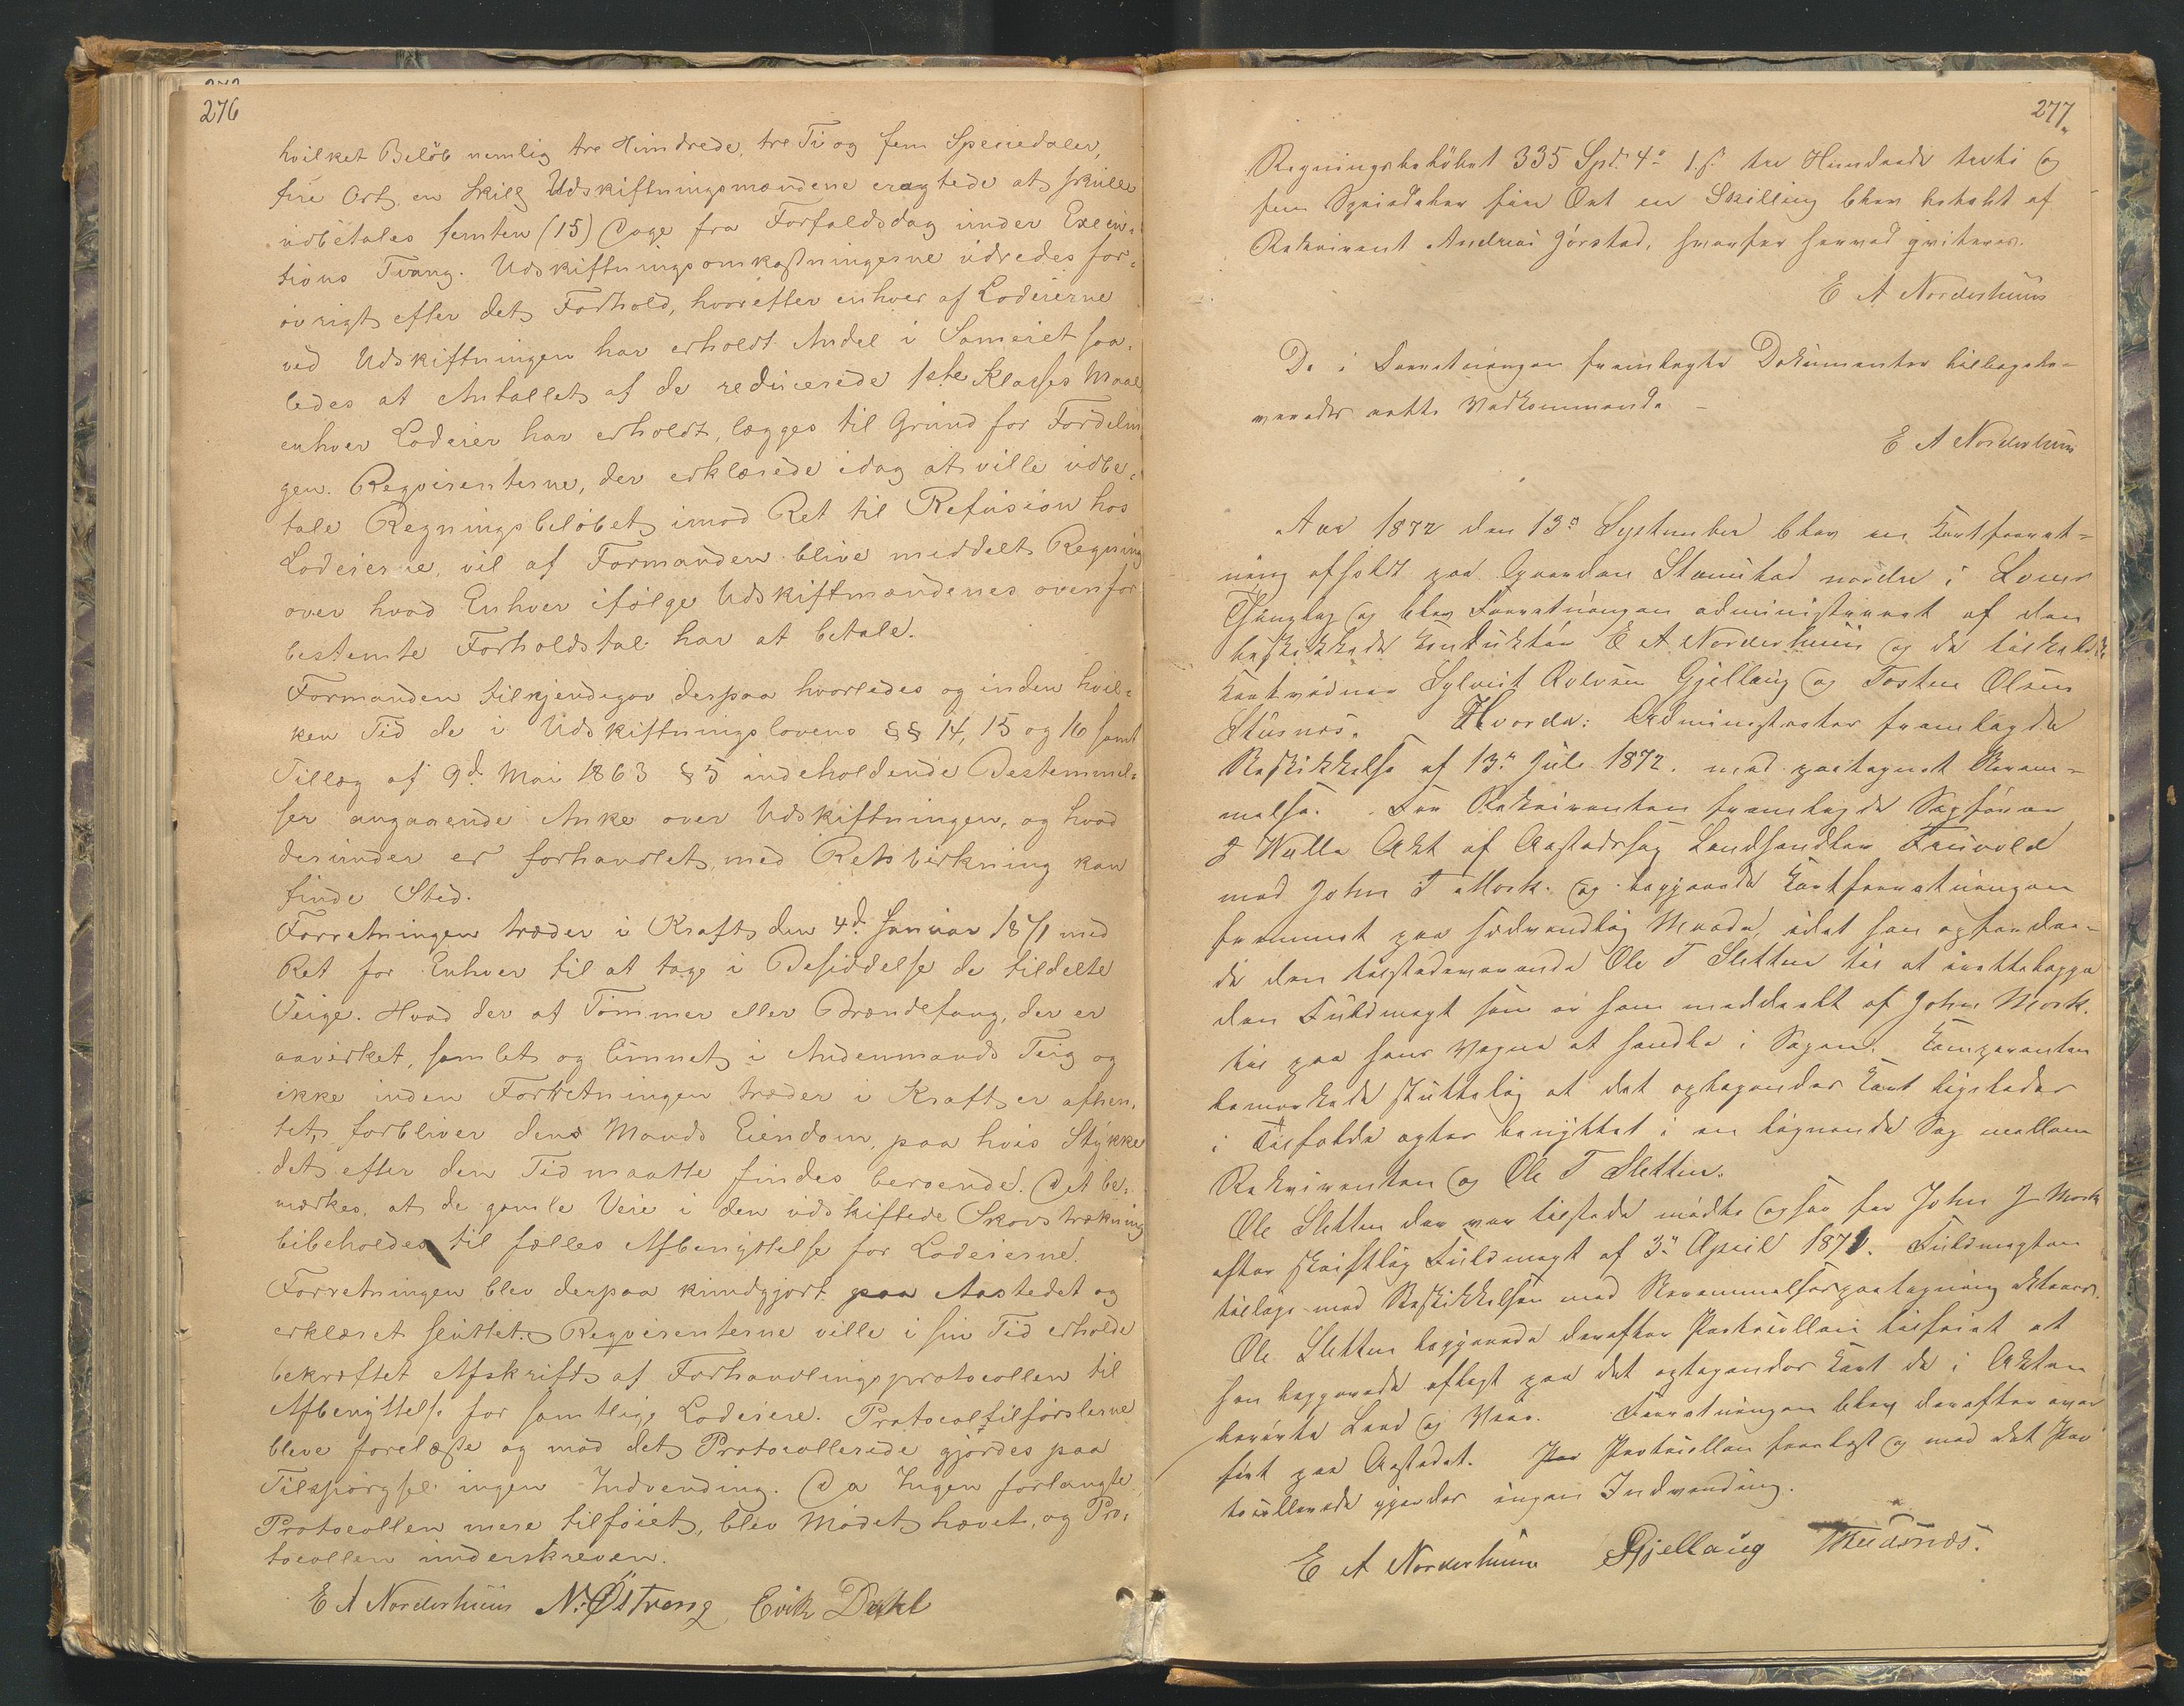 276
hvilket Beløb nemlig tre Hundrede, tre Ti og fem Speciedaler,
fire Ort, en Skilg Udskiftningsmændene eragtede at skulle
udbetales femten (15) Dage fra Forfaldsdag under Execu-
tions Tvang. Udskiftningsomkostningerne udredes for-
øvrigt efter det Forhold, hvorefter enhver af Lodeierne
ved Udskiftningen har erholdt Andel i Sameiet saa-
ledes at Antallet af de reducerede 1ste Klasses Maal
enhver Lodeier har erholdt, lægges til Grund for Fordelin
gen. Reqvirenterne, der erklærede idag at ville udbe-
tale Regningsbeløbet imod Ret til Refusion hos
Lodeierne, vil af Formanden blive meddelt Regning
over hvad Enhver ifølge Udskiftmændenes ovenfor
bestemte Forholdstal har at betale.
Formanden tilkjendegav derpaa hvorledes og inden hvil-
ken Tid de i Udskiftningslovens §§ 14, 15 og 16 samt
Tillæg af 9d. Mai 1863 § 5 indeholdende Bestemmel-
ser angaaende Anke over Udskiftningen, og hvad
derunder er forhandlet med Retsvirkning kan
finde Sted.
Forretningen træder i Kraft den 4d. Januar 1871 med
Ret for Enhver til at tage i Besiddelse de tildelte
Teige. Hvad der af Tømmer eller Brændefang, der er
aavirket, samlet og lunnet i Andenmands Teig og
ikke inden Forretningen træder i Kraft er afhen-
tet, forbliver dens Mands Eiendom, paa hvis Stykke
det efter den Tid maatte findes beroende. Det be-
mærkes, at de gamle Veie i den udskiftede Skovstrækning
bibeholdes til fælles Afbenyttelse for Lodeierne.
Forretningen blev derpaa kundgjort paa Aastedet og
erklæret sluttet. Reqvirenterne ville i sin Tid erholde
bekræftet Afskrift af Forhandlingsprotocollen til
Afbenyttelse for samtlige Lodeiere. Protocoltilførslerne
bleve forelæste og mod det Protocollerede gjordes paa
Tilspørgsel ingen Indvending. Da Ingen forlangte
Protocollen mere tilføiet, blev Mødet hævet, og Pro-
tocollen underskreven.
E A Norderhuus N. Østreng Erik Dahl
277
Regningsbeløbet 335 Spd. 4 1 s. tre Hundrede treti og
fem Speciedaler fire Ort en Skilling blev betalt af
Rekvirent Andreas Jørstad, hvorfor herved qviteres.
E A Norderhuus
De i Forretningen fremlagte Dokumenter tilbagele-
veredes rette Vedkommende –
E A Norderhuus
Aar 1872 den 13de September blev en Kartforret-
ning afholdt paa Gaarden Stamstad nordre i Loms
Thinglag og blev Forretningen administreret af den
beskikkede Konduktør E A Norderhuus og de tilkaldte
Kartvidner Sylvest Gjellaug og Tosten Olsen
Hvorda: Administrator fremlagde
Beskikkelse af 13de Juli 1872. med paategnet Beram-
melse. For Rekvirenten fremlagde Sagfører
J Wulla Akt af Aastedssag Landhandler
mod John T Mork. og begjærede Kartforretningen
fremmet paa sædvandlig Maade, idet han opfordre-
de den tilstedeværende Ole T Sletten til at irettelægge
den Fuldmagt som er ham meddeelt af John Mork.
til paa hans Vegne at handle i Sagen. Komparenten
bemærkede sluttelig at det optagendes Kart ligeledes
i Tilfælde agtes benyttet i en lignende Sag mellem
Rekvirenten og Ole T Sletten.
Ole Sletten der var tilstede mødte ogsaa for John J Mork
efter skriftlig Fuldmagt af 3de April 1871. Fuldmagten
tillige med Beskikkelsen med Berammelsespaategning
Ole Sletten begjærede derefter Protocollen tilføiet at
han begjærede aflagt paa det optagendes Kart de i Akten
berørte Led og Veie. Forretningen blev derefter over
ført paa Aastedet. Protocollen forelæst og mod det Pro
tocollerede gjordes ingen Indvending.
E A Norderhuus Gjellaug